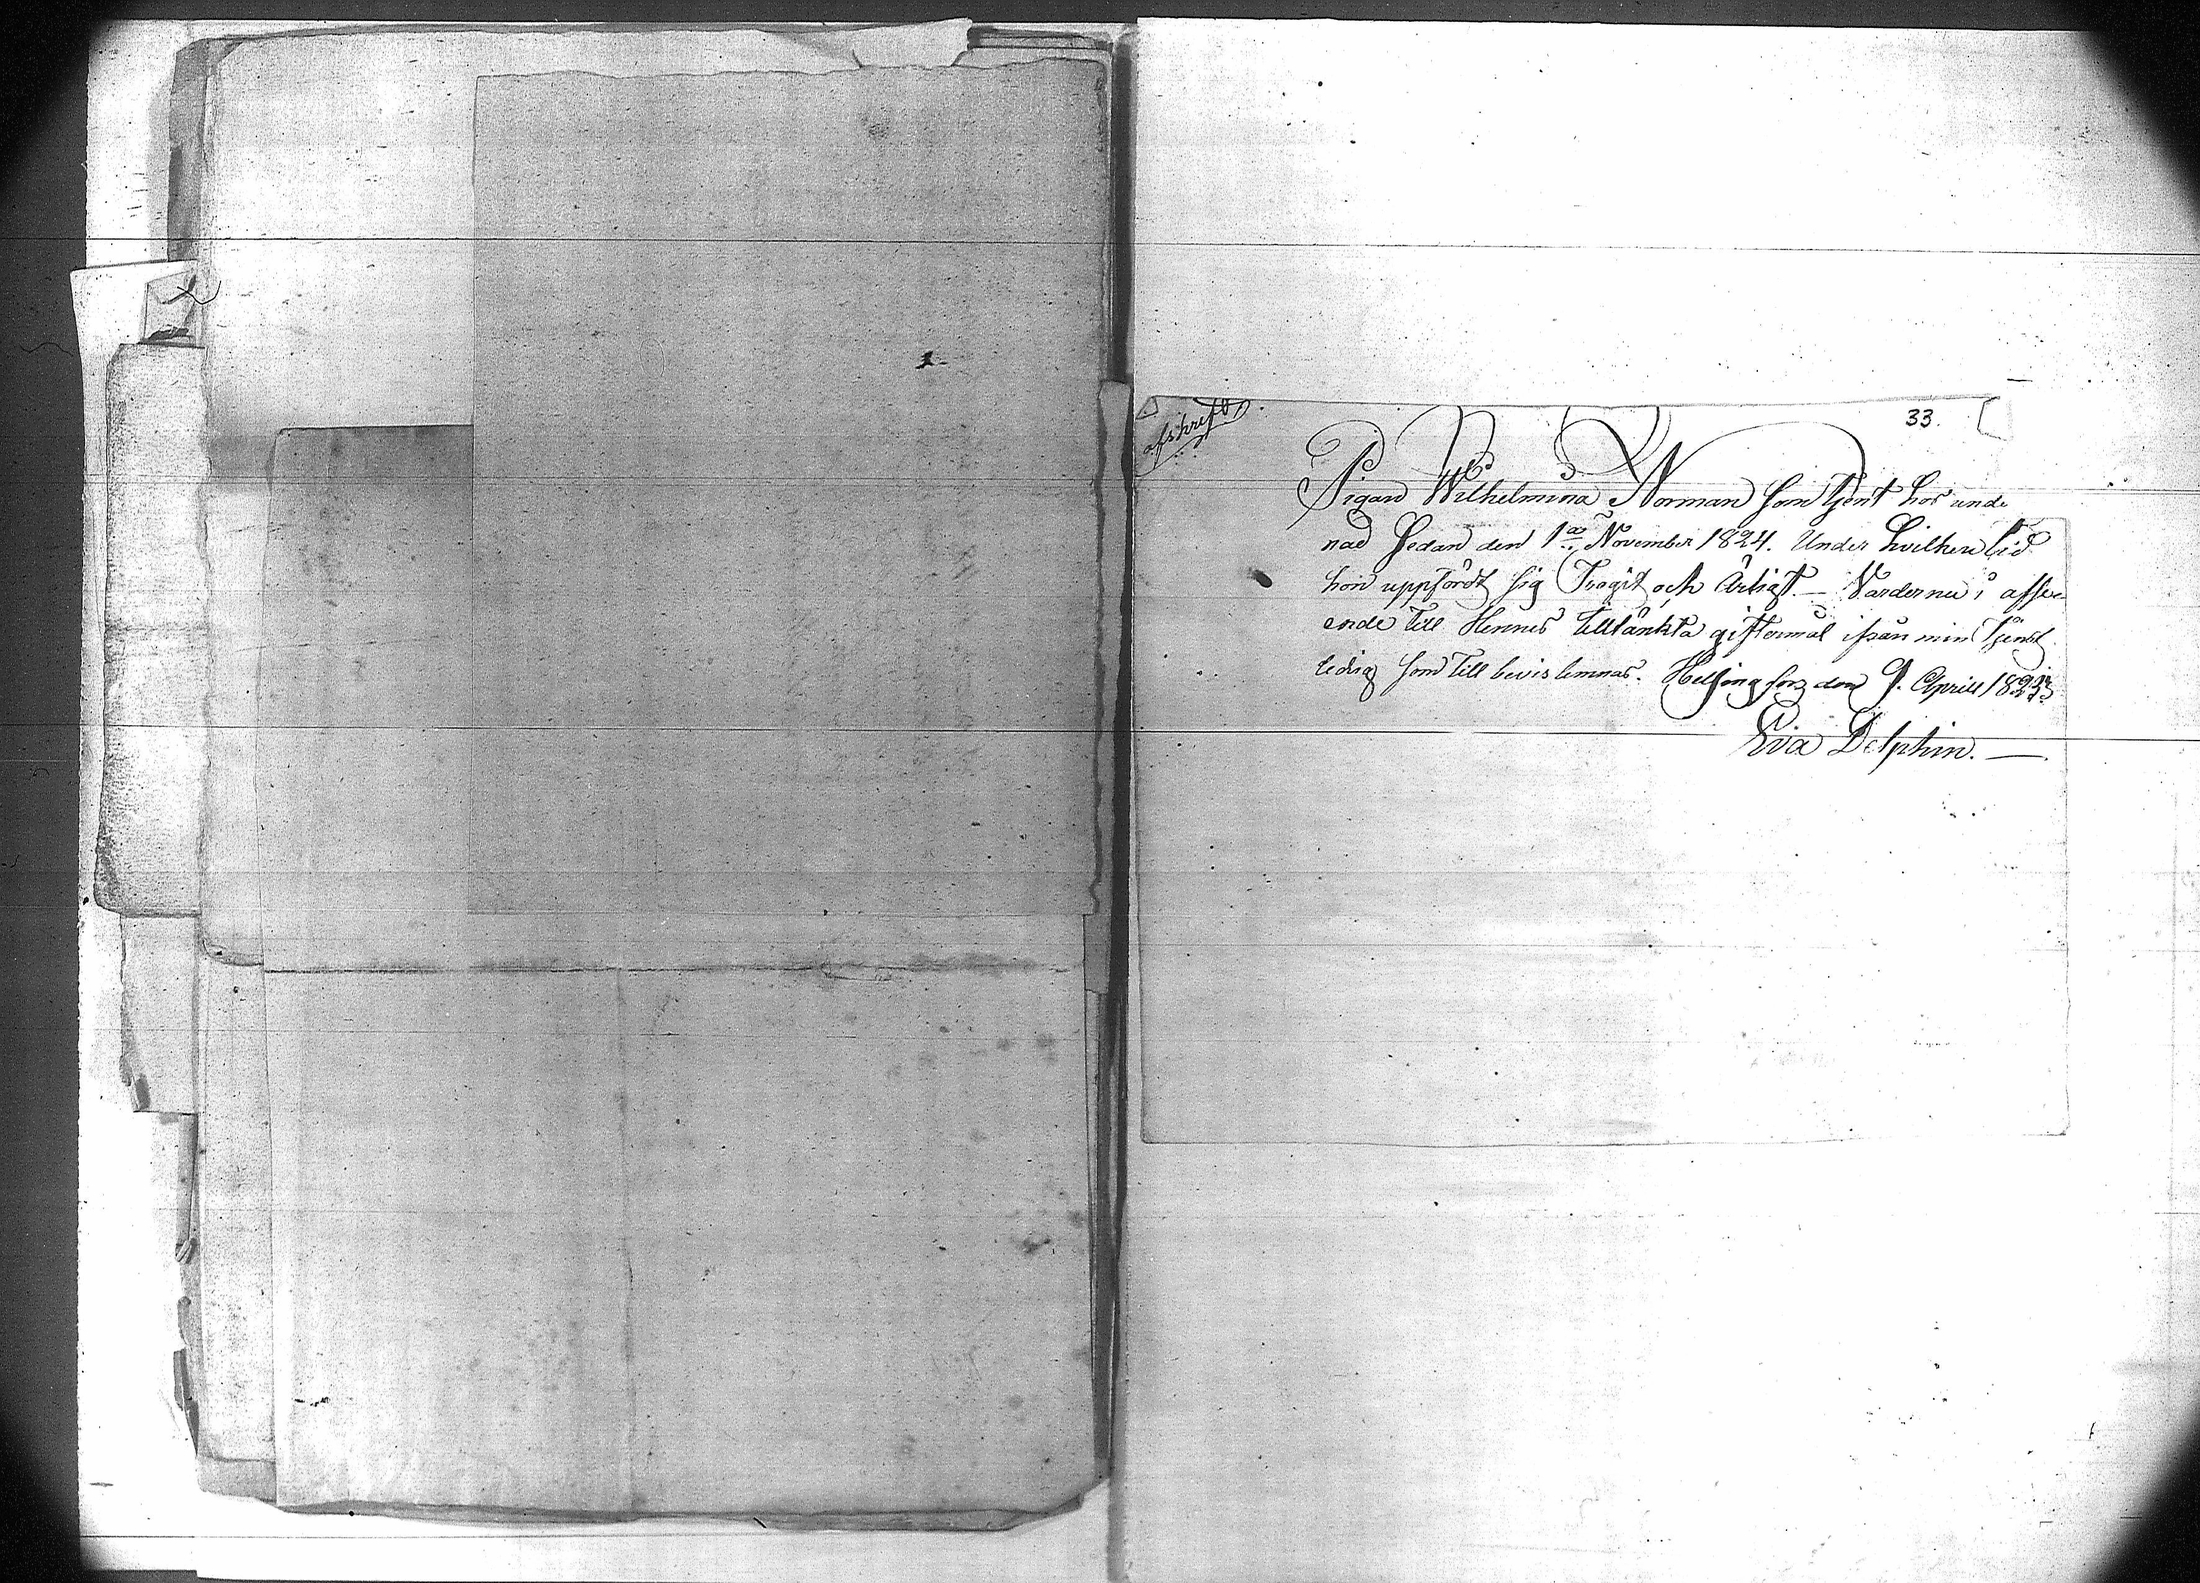 afskrift
33.
Pigan Wilhelmina Norman som tjent hos unde
nad Sedan den 1a November 1824. Under hvilken tid
hon uppfördt sig Trogit och Ärligt. — Varder nu i afse-
ende till Hennes tilltänkta giftermål ifrån min tjenst
ledig som till bevis lemnas. Helsingfors den 9. Aprill
Eva Delphin. —